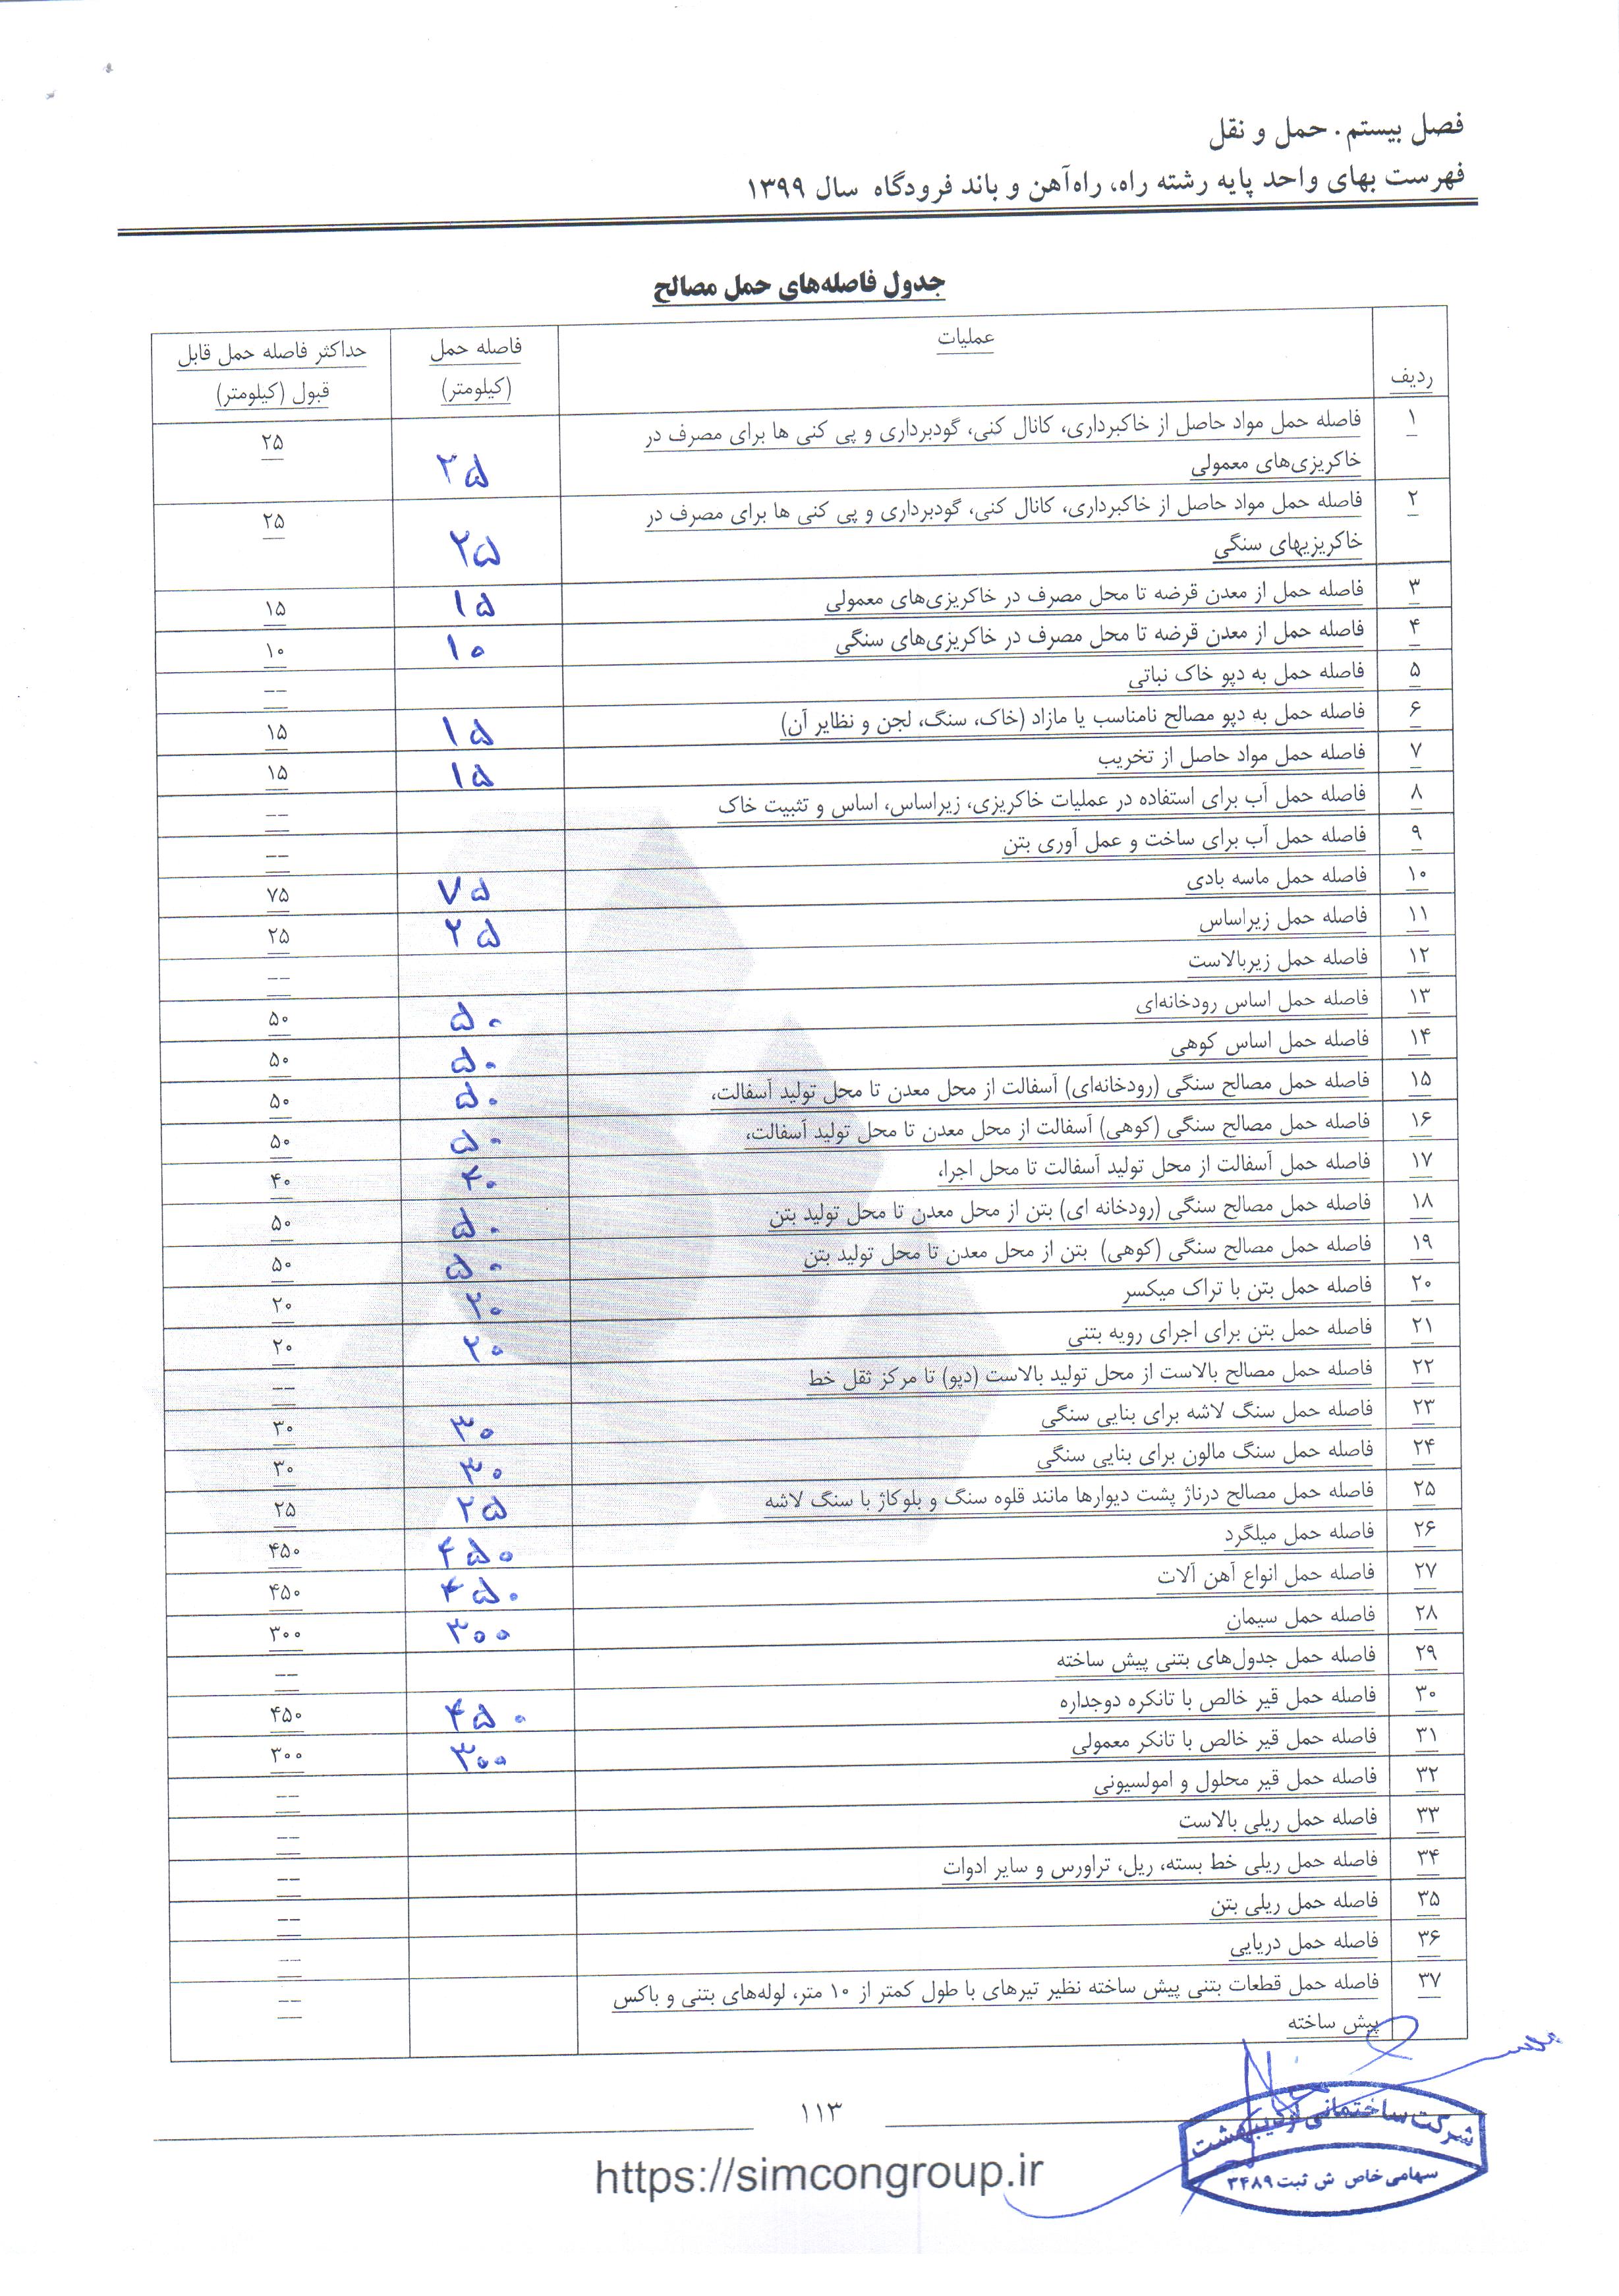 فصل بیستم. حمل و نقل
فهرست بهای واحد پایه رشته راه، راه‌آهن و باند فرودگاه سال ۱۳۹۹
جدول فاصله‌های حمل مصالح
ردیف عملیات فاصله حمل (کیلومتر) حداکثر فاصله حمل قابل قبول (کیلومتر)
۱ فاصله حمل مواد حاصل از خاکبرداری، کانال کنی، گودبرداری و پی کنی ها برای مصرف در
خاکریزی‌های معمولی ۲۵ ۲۵
۲ فاصله حمل مواد حاصل از خاکبرداری، کانال کنی، گودبرداری و پی کنی ها برای مصرف در
خاکریزیهای سنگی ۲۵ ۲۵
۳ فاصله حمل از معدن قرضه تا محل مصرف در خاکریزی‌های معمولی ۱۵ ۱۵
۴ فاصله حمل از معدن قرضه تا محل مصرف در خاکریزی‌های سنگی ۱۰ ۱۰
۵ فاصله حمل به دپو خاک نباتی --
۶ فاصله حمل به دپو مصالح نامناسب یا مازاد (خاک، سنگ، لجن و نظایر آن) ۱۵ ۱۵
۷ فاصله حمل مواد حاصل از تخریب ۱۵ ۱۵
۸ فاصله حمل آب برای استفاده در عملیات خاکریزی، زیراساس، اساس و تثبیت خاک --
۹ فاصله حمل آب برای ساخت و عمل آوری بتن --
۱۰ فاصله حمل ماسه بادی ۷۵ ۷۵
۱۱ فاصله حمل زیراساس ۲۵ ۲۵
۱۲ فاصله حمل زیربالاست --
۱۳ فاصله حمل اساس رودخانه‌ای ۵۰ ۵۰
۱۴ فاصله حمل اساس کوهی ۵۰ ۵۰
۱۵ فاصله حمل مصالح سنگی (رودخانه‌ای) آسفالت از محل معدن تا محل تولید آسفالت، ۵۰ ۵۰
۱۶ فاصله حمل مصالح سنگی (کوهی) آسفالت از محل معدن تا محل تولید آسفالت، ۵۰ ۵۰
۱۷ فاصله حمل آسفالت از محل تولید آسفالت تا محل اجرا، ۴۰ ۴۰
۱۸ فاصله حمل مصالح سنگی (رودخانه ای) بتن از محل معدن تا محل تولید بتن ۵۰ ۵۰
۱۹ فاصله حمل مصالح سنگی (کوهی) بتن از محل معدن تا محل تولید بتن ۵۰ ۵۰
۲۰ فاصله حمل بتن با تراک میکسر ۲۰ ۲۰
۲۱ فاصله حمل بتن برای اجرای رویه بتنی ۲۰ ۲۰
۲۲ فاصله حمل مصالح بالاست از محل تولید بالاست (دپو) تا مرکز ثقل خط --
۲۳ فاصله حمل سنگ لاشه برای بنایی سنگی ۳۰ ۳۰
۲۴ فاصله حمل سنگ مالون برای بنایی سنگی ۳۰ ۳۰
۲۵ فاصله حمل مصالح درناژ پشت دیوارها مانند قلوه سنگ و بلوکاژ با سنگ لاشه ۲۵ ۲۵
۲۶ فاصله حمل میلگرد ۴۵۰ ۴۵۰
۲۷ فاصله حمل انواع آهن آلات ۴۵۰ ۴۵۰
۲۸ فاصله حمل سیمان ۳۰۰ ۳۰۰
۲۹ فاصله حمل جدول‌های بتنی پیش ساخته --
۳۰ فاصله حمل قیر خالص با تانکره دوجداره ۴۵۰ ۴۵۰
۳۱ فاصله حمل قیر خالص با تانکر معمولی ۳۰۰ ۳۰۰
۳۲ فاصله حمل قیر محلول و امولسیونی --
۳۳ فاصله حمل ریلی بالاست --
۳۴ فاصله حمل ریلی خط بسته، ریل، تراورس و سایر ادوات --
۳۵ فاصله حمل ریلی بتن --
۳۶ فاصله حمل دریایی --
۳۷ فاصله حمل قطعات بتنی پیش ساخته نظیر تیرهای با طول کمتر از ۱۰ متر، لوله‌های بتنی و باکس
پیش ساخته --
۱۱۳
https://simcongroup.ir
شرکت ساختمانی اردیبهشت
سهامی خاص ش ثبت ۳۴۸۹